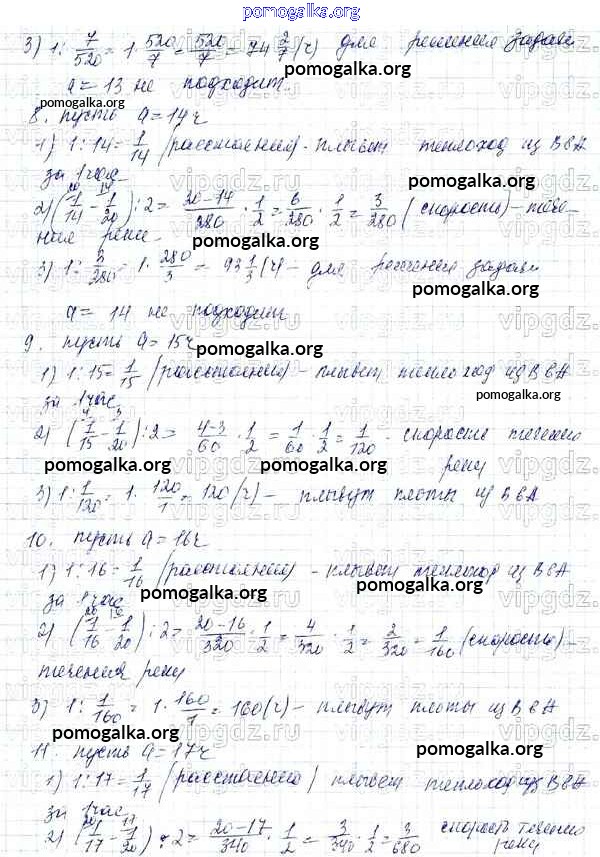 pomogalka.org
3) 1: 7/520 = 1·520/7 = 520/7 = 74 2/7 (ч) для решения задачи
a = 13 не подходит.
pomogalka.org
8. пусть a = 14ч
1) 1:14 = 1/14 (расстояния) - плывет теплоход из В в А
за 1 час
pomogalka.org
2) (1/14 - 1/20):2 = 20-14/280 · 1/2 = 6/280 · 1/2 = 3/280 (скорость) - тече-
ния реки -
pomogalka.org
3) 1: 3/280 = 1· 280/3 = 93 1/3 (ч) - для решения задачи
pomogalka.org
a = 14 не подходит
9. пусть a = 15ч
pomogalka.org
1) 1:15 = 1/15 (расстояния) - плывет теплоход из В в А
за 1 час
pomogalka.org
2) (1/15 - 1/20):2 = 4-3/60 · 1/2 = 1/60 · 1/2 = 1/120 - скорость течения
реки
pomogalka.org pomogalka.org
3) 1: 1/120 = 1· 120/1 = 120 (ч) - плывут плоты из В в А
10. пусть a = 16ч
pomogalka.org
1) 1:16 = 1/16 (расстояния) - плывет теплоход из В в А
за 1 час
pomogalka.org
2) (1/16 - 1/20):2 = 20-16/320 · 1/2 = 4/320 · 1/2 = 2/320 = 1/160 (скорость) -
течения реки
pomogalka.org
3) 1: 1/160 = 1· 160/1 = 160 (ч) - плывут плоты из В в А
pomogalka.org pomogalka.org
11. пусть a = 17ч
1) 1:17 = 1/17 (расстояние) плывет теплоход из В в А
за 1 час
pomogalka.org pomogalka.org
2) (1/17 - 1/20):2 = 20-17/340 · 1/2 = 3/340 · 1/2 = 3/680 скорость течения
реки